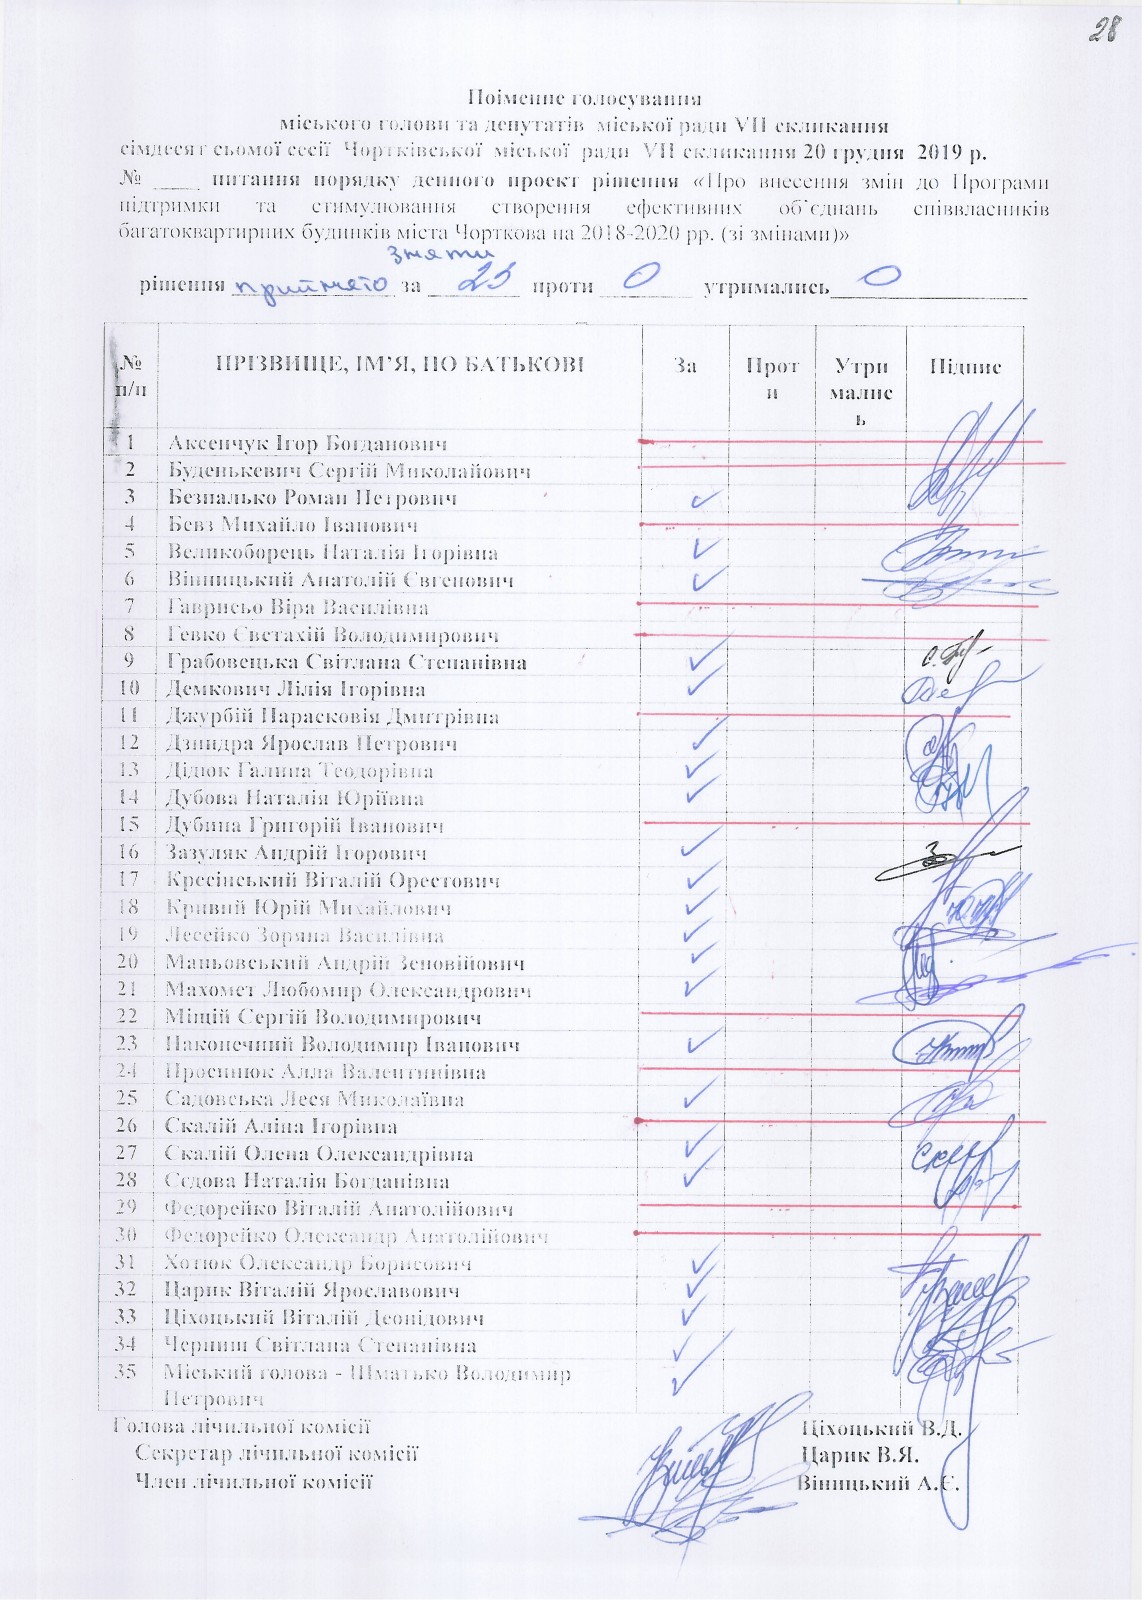 28
Поіменне голосування
міського голови та депутатів міської ради VII скликання
сімдесят сьомої сесії Чортківської міської ради VII скликання 20 грудня 2019 р.
№ ____ питання порядку денного проект рішення «Про внесення змін до Програми
підтримки та стимулювання створення ефективних об`єднань співвласників
багатоквартирних будинків міста Чорткова на 2018-2020 рр. (зі змінами)»
зняти
рішення прийнято за 23 проти 0 утримались 0
№ п/п ПРІЗВИЩЕ, ІМ’Я, ПО БАТЬКОВІ За Проти Утрималис ь Підпис
1 Аксенчук Ігор Богданович
2 Буденькевич Сергій Миколайович
3 Безпалько Роман Петрович
4 Бевз Михайло Іванович
5 Великоборець Наталія Ігорівна
6 Вінницький Анатолій Євгенович
7 Гаврисьо Віра Василівна
8 Гевко Євстахій Володимирович
9 Грабовецька Світлана Степанівна
10 Демкович Лілія Ігорівна
11 Джурбій Парасковія Дмитрівна
12 Дзиндра Ярослав Петрович
13 Дідюк Галина Теодорівна
14 Дубова Наталія Юріївна
15 Дубина Григорій Іванович
16 Зазуляк Андрій Ігорович
17 Кресінський Віталій Орестович
18 Кривий Юрій Михайлович
19 Лесейко Зоряна Василівна
20 Маньовський Андрій Зеновійович
21 Махомет Любомир Олександрович
22 Міщій Сергій Володимирович
23 Наконечний Володимир Іванович
24 Просинюк Алла Валентинівна
25 Садовська Леся Миколаївна
26 Скалій Аліна Ігорівна
27 Скалій Олена Олександрівна
28 Сєдова Наталія Богданівна
29 Федорейко Віталій Анатолійович
30 Федорейко Олександр Анатолійович
31 Хотюк Олександр Борисович
32 Царик Віталій Ярославович
33 Ціхоцький Віталій Деонідович
34 Черниш Світлана Степанівна
35 Міський голова - Шматько Володимир
Петрович
Голова лічильної комісії Ціхоцький В.Д.
Секретар лічильної комісії Царик В.Я.
Член лічильної комісії Віницький А.Є.